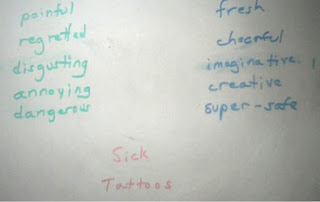 painful
regretted
disgusting
annoying
dangerous
fresh
cheerful
imaginative
creative
super-safe
Sick
Tattoos